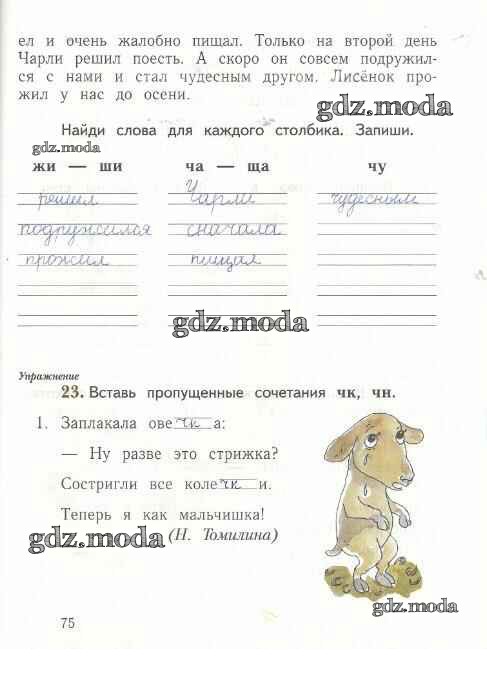 ел и очень жалобно пищал. Только на второй день
Чарли решил поесть. А скоро он совсем подружил-
ся с нами и стал чудесным другом. Лисёнок про-
жил у нас до осени.
gdz.moda
Найди слова для каждого столбика. Запиши.
gdz.moda
жи — ши ча — ща чу
решил Чарли чудесным
подружился сначала
прожил пищал
gdz.moda
Упражнение
23. Вставь пропущенные сочетания чк, чн.
1. Заплакала овечка:
— Ну разве это стрижка?
Состригли все колечки.
Теперь я как мальчишка!
gdz.moda
(Н. Томилина)
gdz.moda
75